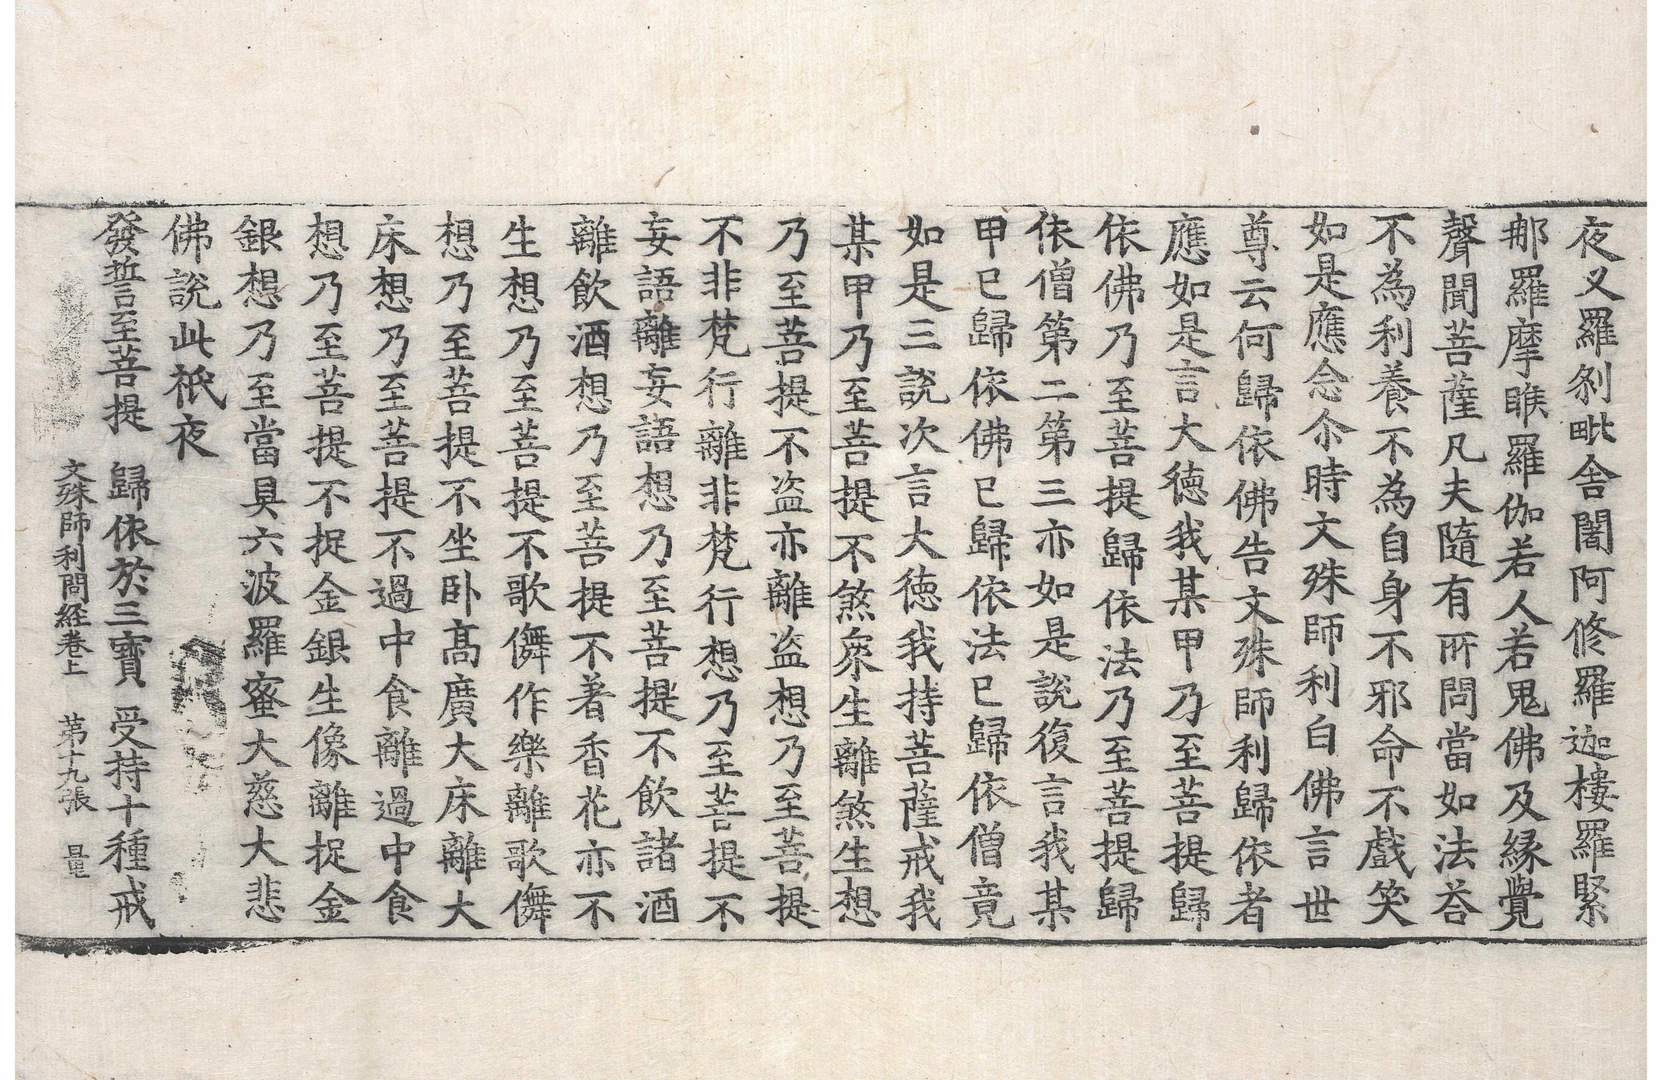 夜叉羅剎毗舍闍阿修羅迦樓羅緊
那羅摩睺羅伽若人若鬼佛及緣覺
聲聞菩薩凡夫隨有所問當如法荅
不為利養不為自身不邪命不戲笑
如是應念尒時文殊師利白佛言世
尊云何歸依佛告文殊師利歸依者
應如是言大德我某甲乃至菩提歸
依佛乃至菩提歸依法乃至菩提歸
依僧第二第三亦如是說復言我某
甲已歸依佛已歸依法已歸依僧竟
如是三說次言大德我持菩薩戒我
某甲乃至菩提不煞衆生離煞生想
乃至菩提不盜亦離盜想乃至菩提
不非梵行離非梵行想乃至菩提不
妄語離妄語想乃至菩提不飲諸酒
離飲酒想乃至菩提不著香花亦不
生想乃至菩提不歌儛作樂離歌儛
想乃至菩提不坐卧高廣大床離大
床想乃至菩提不過中食離過中食
想乃至菩提不捉金銀生像離捉金
銀想乃至當具六波羅蜜大慈大悲
佛說此祇夜
發誓至菩提 歸依於三寶 受持十種戒
文殊師利問経卷上 第十九張 量